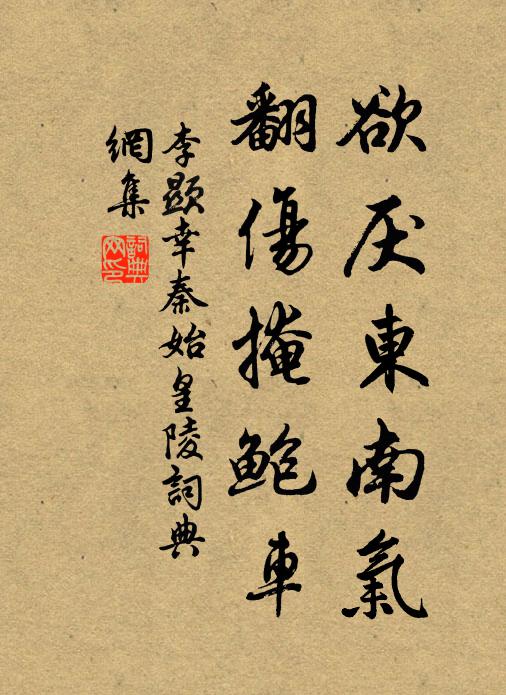 欲厌東南氣
翻傷掩鲍車
李顯幸秦始皇陵詞典
網集
詞典
网印